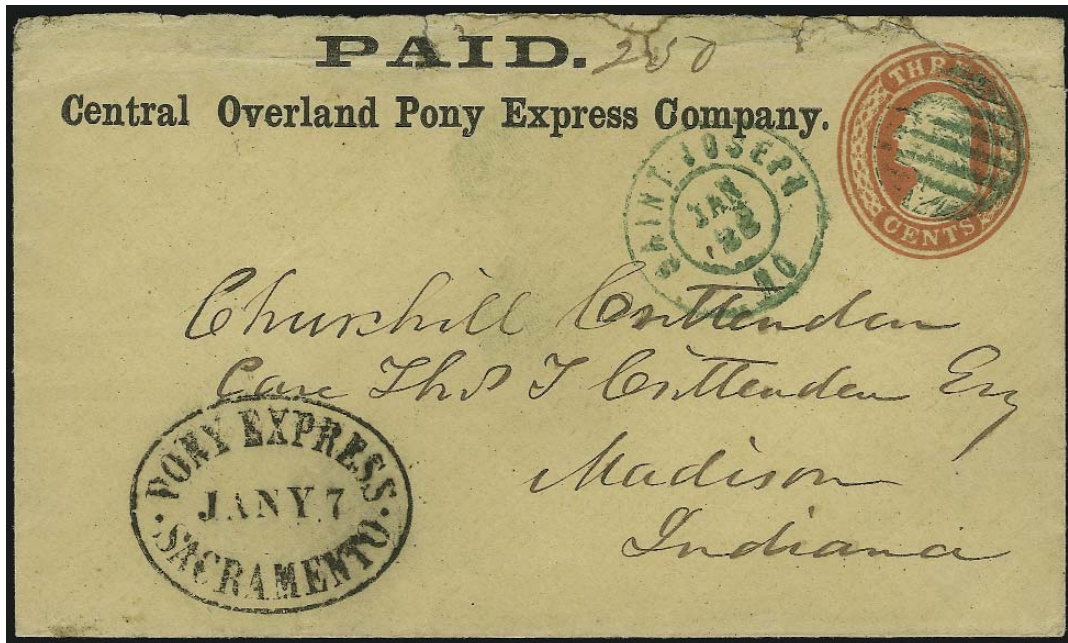 PAID. 250
Central Overland Pony Express Company.
THREE
CENTS
SAINT JOSEPH
JAN
22
MO
Churchill Crittenden
Care Thos I Crittenden Esq
Madison
Indiana
PONY EXPRESS
JANY. 7
SACRAMENTO